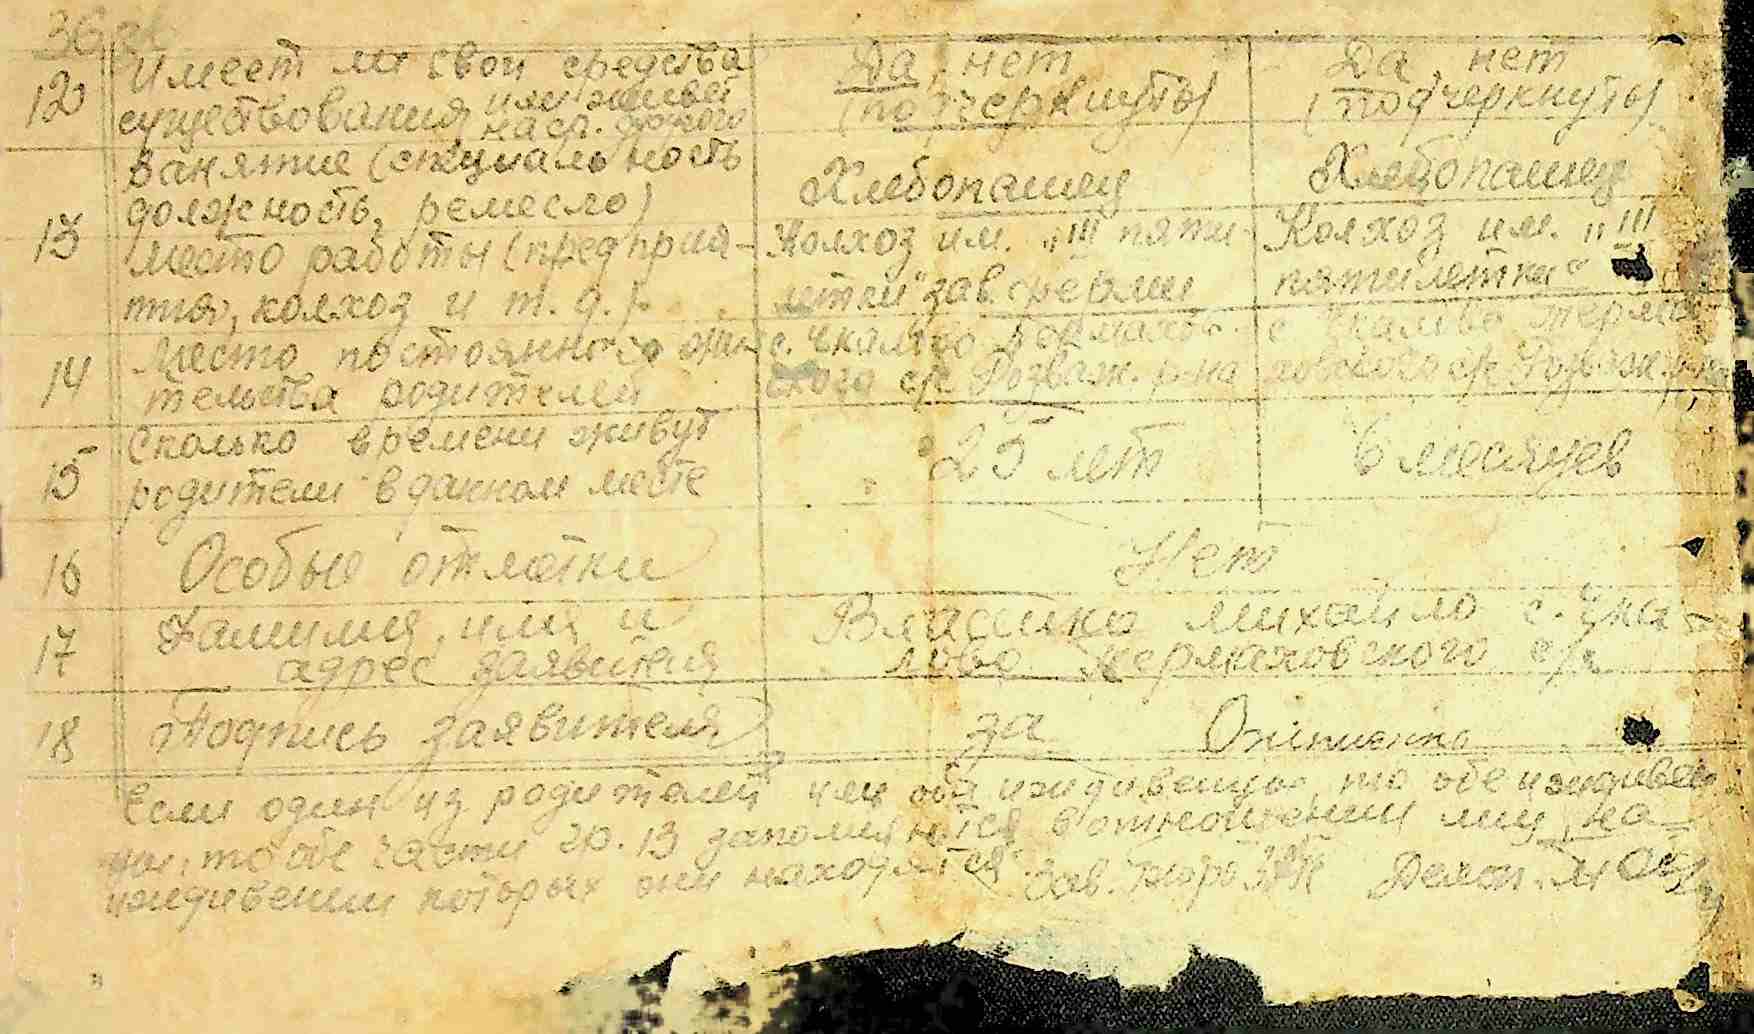 36
12 Имеет ли свои средства Да, нет Да нет
существования или живет (подчеркнуть) (подчеркнуть)
на ср. другого
Занятие (специальность Хлебопашец Хлебопашец
должность, ремесло)
13 Место работы (предприя- Колхоз им. "III пяти- Колхоз им. "III
тия, колхоз и т.д.) летки" зав. фермы пятилетки"
14 Место постоянного жи- с. Чкалово Термахо- с Чкалово Терма-
тельства родителей ского с/с Розваж. р-на ховского с/с Розваж. р-на
15 Сколько времени живут 25 лет 6 месяцев
родители в данном месте
16 Особые отметки Нет
17 Фамилия, имя и Власенко Михайло с. Чка-
адрес заявителя лово Термаховского с/с
18 Подпись заявителя за
Если один из родителей или оба иждивенцы, то обе иждивен
цы, то обе части гр. 13 заполняются в отношении лиц, на
иждивении которых они находятся. Зав. бюро ЗАГС